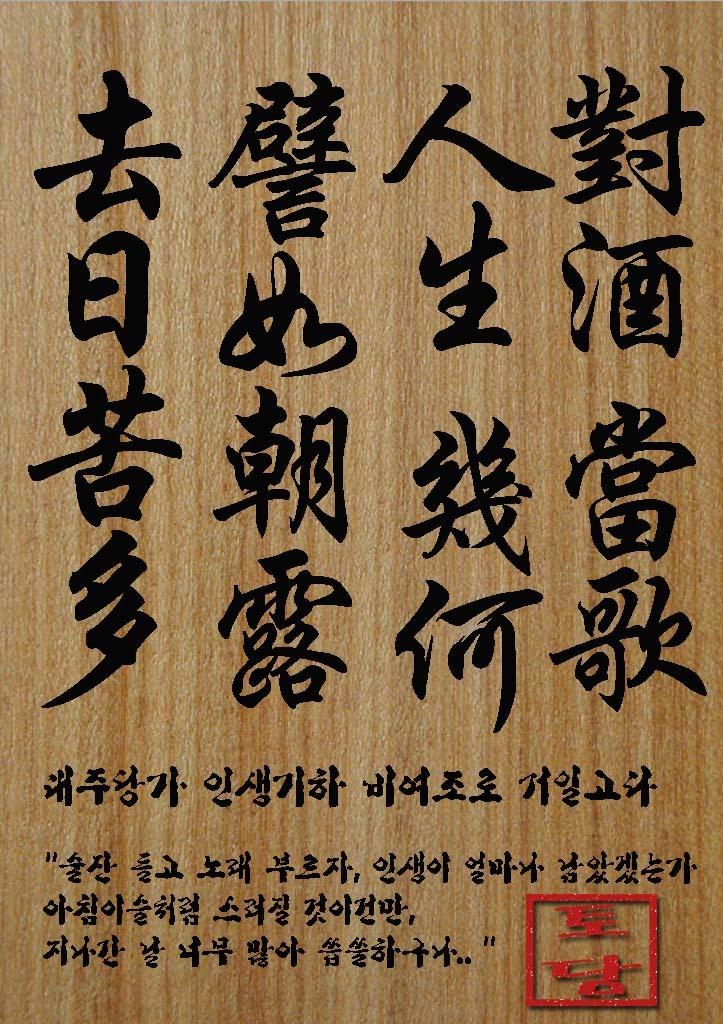 對酒當歌
人生幾何
譬如朝露
去日苦多
대주당가 인생기하 비여조로 거일고다
"술잔 들고 노래 부르자, 인생이 얼마나 남았겠는가
아침이슬처럼 스러질 것이건만,
지나간 날 너무 많아 씁쓸하구나.. "
토
당